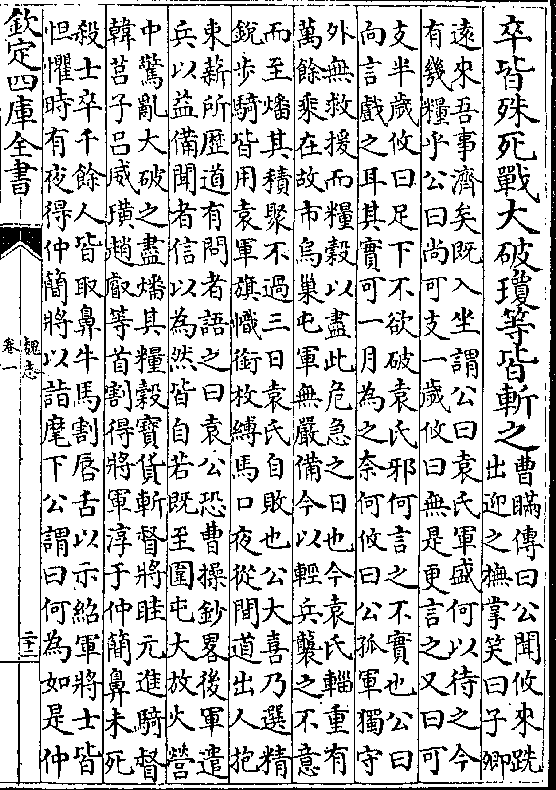 卒皆殊死戰大破瓊等皆斬之
曹瞞傳曰公聞攸來跣
出迎之撫掌笑曰子卿
遠來吾事濟矣既入坐謂公曰袁氏軍盛何以待之今
有幾糧乎公曰尚可支一歲攸曰無是更言之又曰可
支半歲攸曰足下不欲破袁氏邪何言之不實也公曰
向言戲之耳其實可一月為之奈何攸曰公孤軍獨守
外無救援而糧穀以盡此危急之日也今袁氏輜重有
萬餘乘在故市烏巢屯軍無嚴備今以輕兵襲之不意
而至燔其積聚不過三日袁氏自敗也公大喜乃選精
銳步騎皆用袁軍旗幟銜枚縛馬口夜從間道出人抱
束薪所歷道有問者語之曰袁公恐曹操鈔畧後軍遣
兵以益備聞者信以為然皆自若既至圍屯大放火營
中驚亂大破之盡燔其糧穀寶貨斬督將眭元進騎督
韓莒子呂威璜趙叡等首割得將軍淳于仲簡鼻未死
殺士卒千餘人皆取鼻牛馬割唇舌以示紹軍將士皆
怛懼時有夜得仲簡將以詣麾下公謂曰何為如是仲
欽定四庫全書
魏志
卷一
二十二